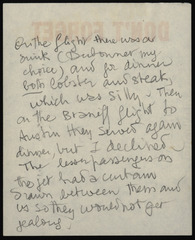 On the flight there was a
drink (Dubonnet my
choice) and for dinner
both lobster and steak,
which was silly. Then
on the Braniff flight to
Austin they served again
dinner but I declined.
The lesser passengers on
the jet had a curtain
drawn between them and
us so they would not get
jealous.